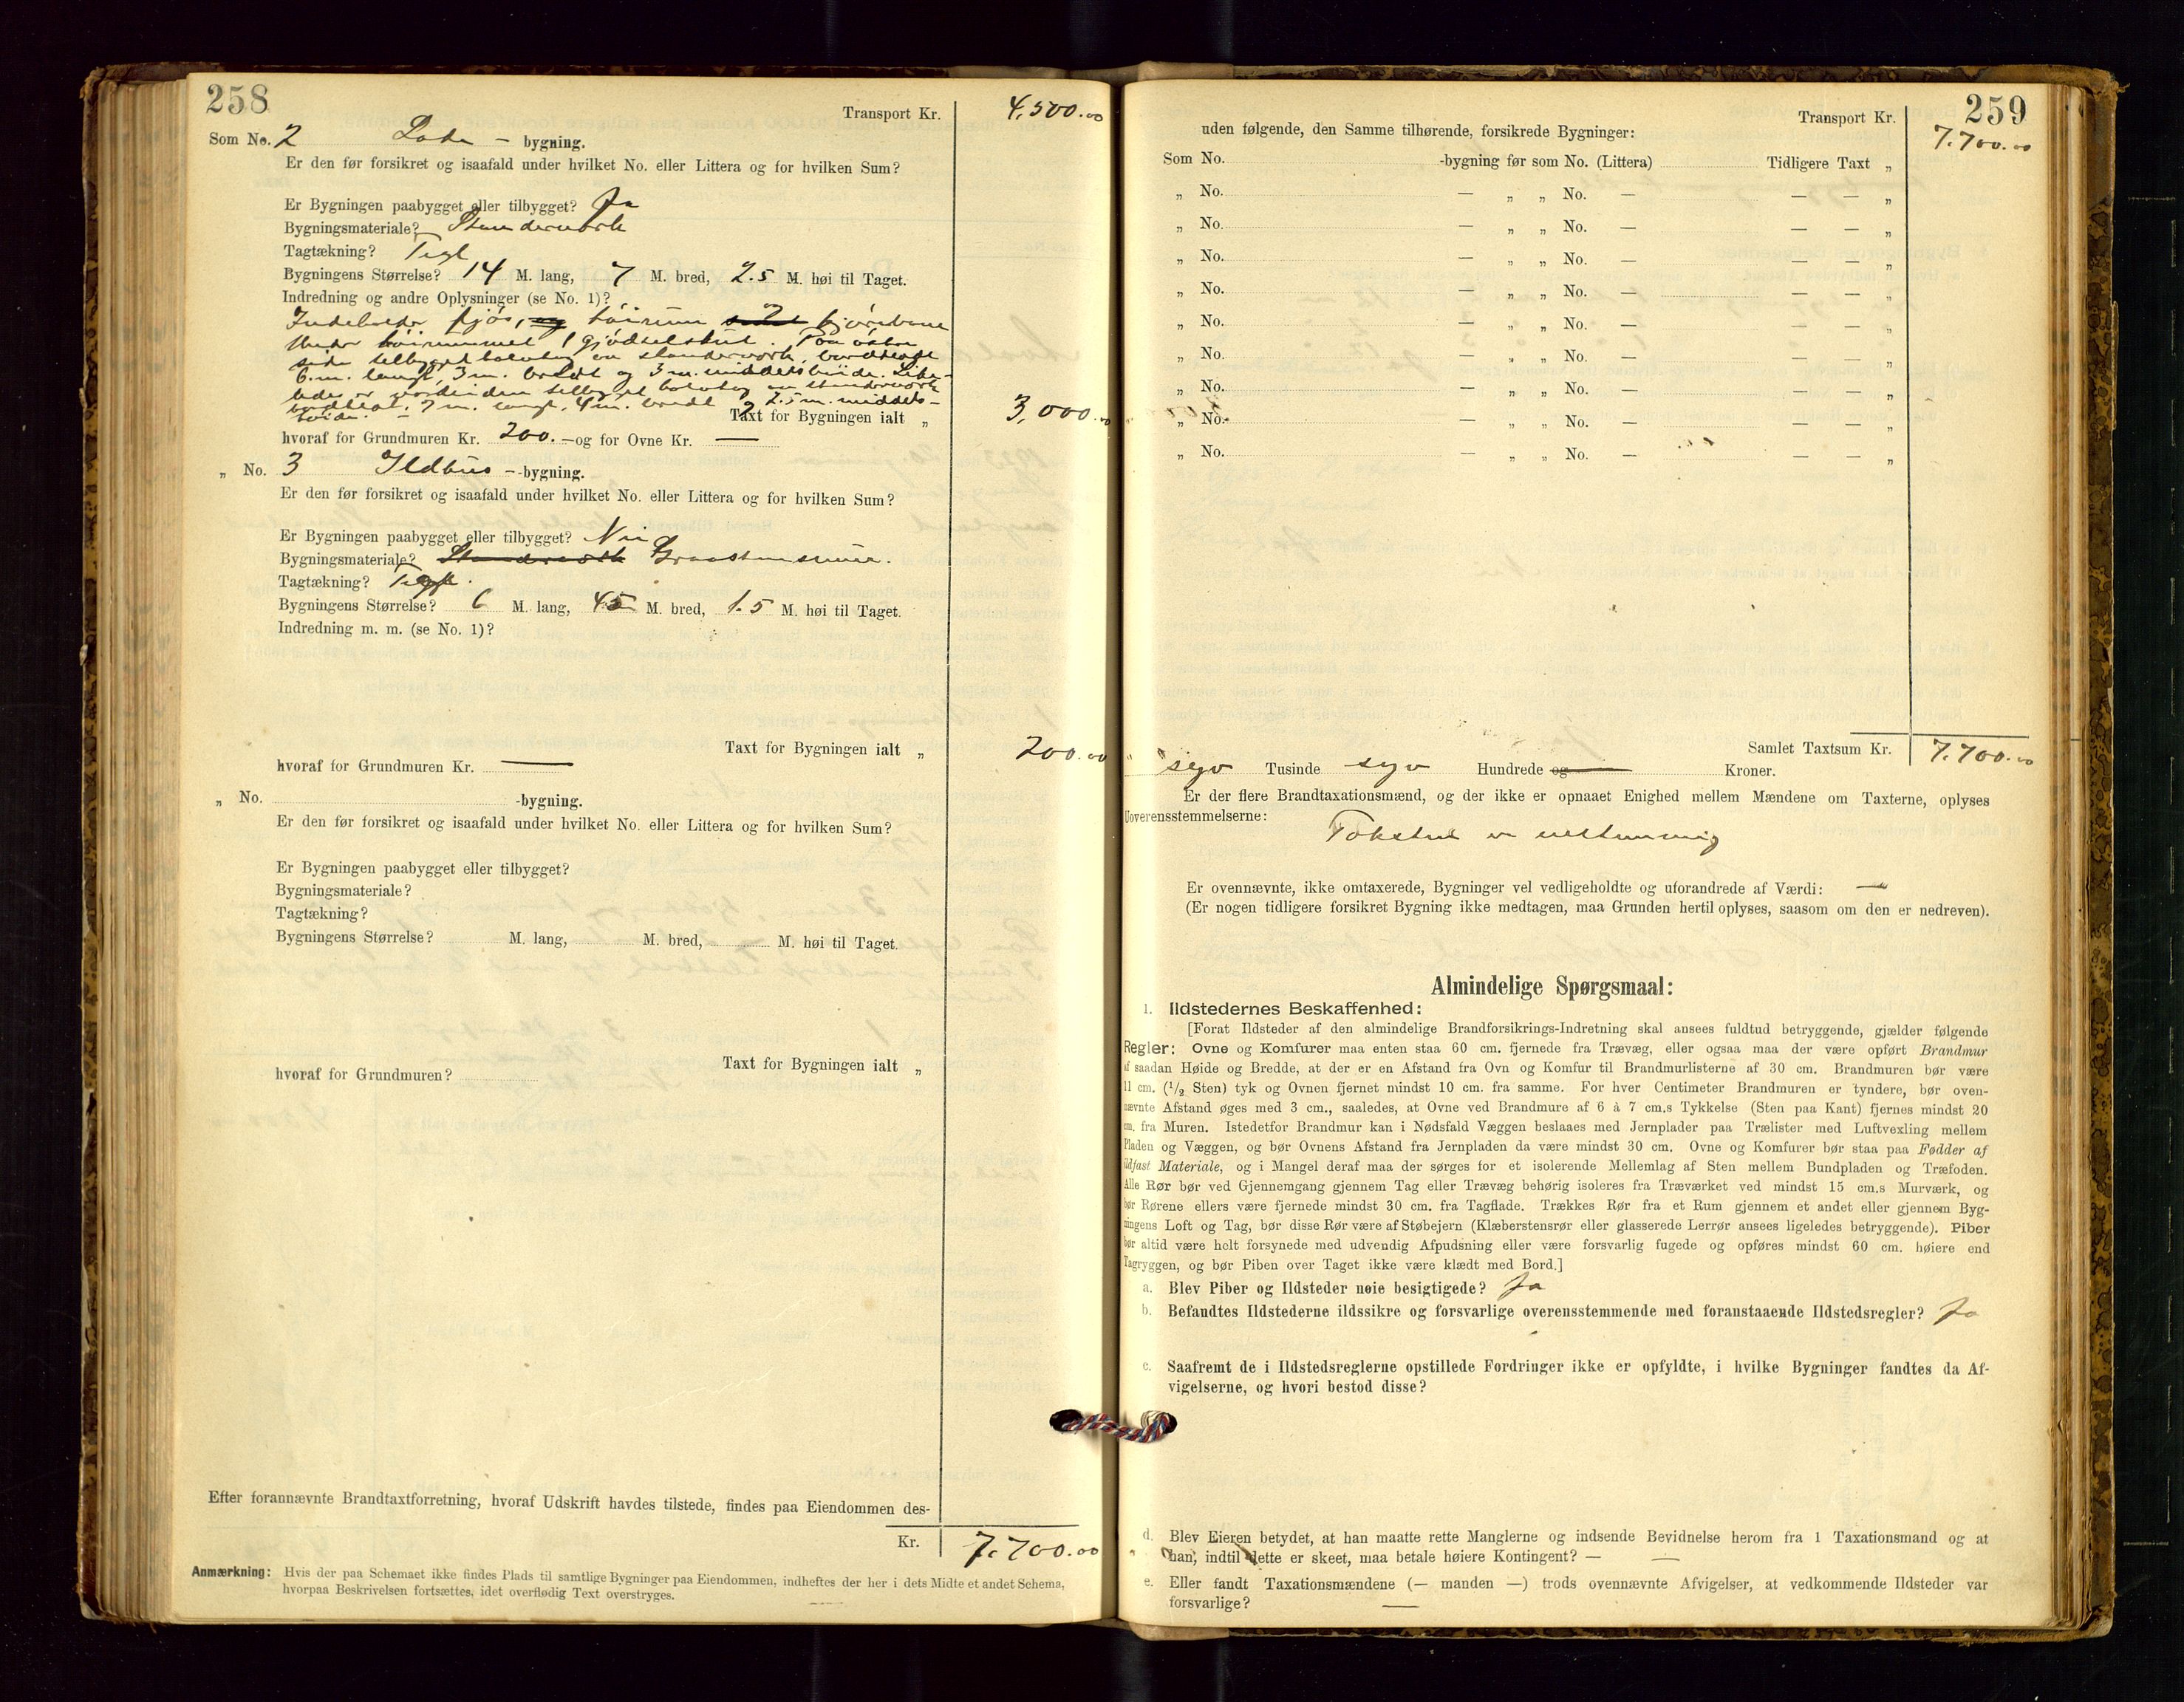 258
Transport Kr. 4,500.00
Som No. 2 Lade - bygning.
Er den før forsikret og isaafald under hvilket No. eller Littera og for hvilken Sum?
Er Bygningen paabygget eller tilbygget? Ja
Bygningsmateriale? Standerverk
Tagtækning? Tegl
Bygningens Størrelse? 14 M. lang, 7 M. bred, 2.5 M. høi til Taget.
Indredning og andre Oplysninger (se No. 1)?
Indeholder fjøs, og høirum
Under høirummet 1 gjødselskut. Paa østre
side tilbygget halvtag av standerverk, bordklædt
6. m. langt, 3 m. bredt og 3 m. middelshøide. Lige-
ledes er nordenden tilbygget halvtag av standerverk
bordklæt, 7 m. langt, 4 m. bredt, 2.5 m. middels-
høide. Taxt for Bygningen ialt „ 3,000.00
hvoraf for Grundmuren Kr. 200.- og for Ovne Kr. —
„ No. 3 Ildhus - -bygning.
Er den før forsikret og isaafald under hvilket No. eller Littera og for hvilken Sum?
Er Bygningen paabygget eller tilbygget? Nei
Bygningsmateriale? Standerverk Graastensmur.
Tagtækning? Tegl.
Bygningens Størrelse? 6 M. lang, 4.5 M. bred, 1.5 M. høi til Taget.
Indredning m. m. (se No. 1)?
Taxt for Bygningen ialt „ 200.00
hvoraf for Grundmuren Kr. —
„ No. -bygning.
Er den før forsikret og isaafald under hvilket No. eller Littera og for hvilken Sum?
Er Bygningen paabygget eller tilbygget?
Bygningsmateriale?
Tagtækning?
Bygningens Størrelse? M. lang, M. bred, M. høi til Taget.
Taxt for Bygningen ialt „
hvoraf for Grundmuren?
Efter forannævnte Brandtaxtforretning, hvoraf Udskrift havdes tilstede, findes paa Eiendommen des-
Kr. 7.700.00
Anmærkning: Hvis der paa Schemaet ikke findes Plads til samtlige Bygninger paa Eiendommen, indheftes der her i dets Midte et andet Schema,
hvorpaa Beskrivelsen fortsættes, idet overflødig Text overstryges.
259
Transport Kr. 7.700.00
uden følgende, den Samme tilhørende, forsikrede Bygninger:
Som No. -bygning før som No. (Littera) Tidligere Taxt „
„ No. — „ „ No. — — — „
„ No. — „ „ No. — — — „
„ No. — „ „ No. — — — „
„ No. — „ „ No. — — — „
„ No. — „ „ No. — — — „
„ No. — „ „ No. — — — „
„ No. — „ „ No. — — — „
„ No. — „ „ No. — — — „
„ No. — „ „ No. — — — „
Samlet Taxtsum Kr. 7.700.00
syv Tusinde syv Hundrede og Kroner.
Er der flere Brandtaxationsmænd, og der ikke er opnaaet Enighed mellem Mændene om Taxterne, oplyses
Uoverensstemmelserne:
Taksten er enstemmig
Er ovennævnte, ikke omtaxerede, Bygninger vel vedligeholdte og uforandrede af Værdi: —
(Er nogen tidligere forsikret Bygning ikke medtagen, maa Grunden hertil oplyses, saasom om den er nedreven).
Almindelige Spørgsmaal:
1. Ildstedernes Beskaffenhed:
[Forat Ildsteder af den almindelige Brandforsikrings-Indretning skal ansees fuldtud betryggende, gjælder følgende
Regler: Ovne og Komfurer maa enten staa 60 cm. fjernede fra Trævæg, eller ogsaa maa der være opført Brandmur
af saadan Høide og Bredde, at der er en Afstand fra Ovn og Komfur til Brandmurlisterne af 30 cm. Brandmuren bør være
11 cm. (1/2 Sten) tyk og Ovnen fjernet mindst 10 cm. fra samme. For hver Centimeter Brandmuren er tyndere, bør oven-
nævnte Afstand øges med 3 cm., saaledes, at Ovne ved Brandmure af 6 à 7 cm.s Tykkelse (Sten paa Kant) fjernes mindst 20
cm. fra Muren. Istedetfor Brandmur kan i Nødsfald Væggen beslaaes med Jernplader paa Trælister med Luftvexling mellem
Pladen og Væggen, og bør Ovnens Afstand fra Jernpladen da være mindst 30 cm. Ovne og Komfurer bør staa paa Fødder af
ildfast Materiale, og i Mangel deraf maa der sørges for et isolerende Mellemlag af Sten mellem Bundpladen og Træfoden.
Alle Rør bør ved Gjennemgang gjennem Tag eller Trævæg behørig isoleres fra Træværket ved mindst 15 cm.s Murværk, og
bør Rørene ellers være fjernede mindst 30 cm. fra Tagflade. Trækkes Rør fra et Rum gjennem et andet eller gjennem Byg-
ningens Loft og Tag, bør disse Rør være af Støbejern (Klæberstensrør eller glasserede Lerrør ansees ligeledes betryggende). Piber
bør altid være helt forsynede med udvendig Afpudsning eller være forsvarlig fugede og opføres mindst 60 cm. høiere end
Tagryggen, og bør Piben over Taget ikke være klædt med Bord.]
a. Blev Piber og Ildsteder nøie besigtigede? Ja
b. Befandtes Ildstederne ildssikre og forsvarlige overensstemmende med foranstaaende Ildstedsregler? Ja
c. Saafremt de i Ildstedsreglerne opstillede Fordringer ikke er opfyldte, i hvilke Bygninger fandtes da Af-
vigelserne, og hvori bestod disse?
d. Blev Eieren betydet, at han maatte rette Manglerne og indsende Bevidnelse herom fra 1 Taxationsmand og at
han, indtil dette er skeet, maa betale høiere Kontingent? — —
e. Eller fandt Taxationsmændene (— manden —) trods ovennævnte Afvigelser, at vedkommende Ildsteder var
forsvarlige? —